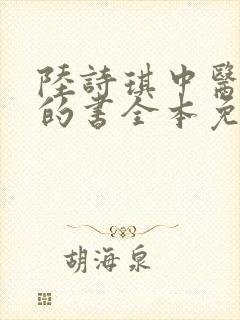 陸詩琪中醫
的書全本免
胡海泉